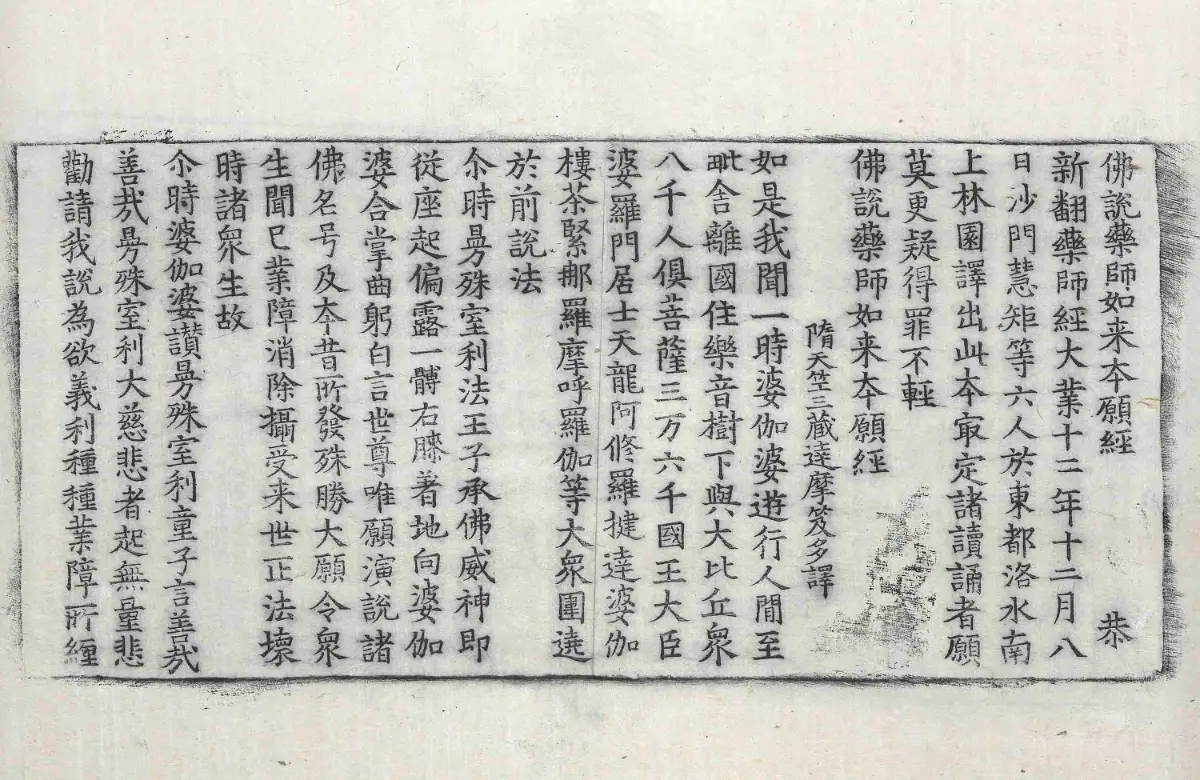 佛說藥師如来夲願經　恭
新翻藥師經大業十二年十二月八
日沙門慧矩等六人於東都洛水南
上林園譯出此夲㝡定諸讀誦者願
莫更疑得罪不輕
佛說藥師如来夲願經
隋天竺三藏達摩笈多譯
如是我聞一時婆伽婆遊行人閒至
毗舍離國住樂音樹下與大比丘衆
八千人俱菩薩三万六千國王大臣
婆羅門居士天龍阿修羅揵達婆伽
樓茶緊那羅摩呼羅伽等大衆圍遶
於前說法
尒時曼殊室利法王子承佛威神即
從座起偏露一髆右膝著地向婆伽
婆合掌曲躬白言世尊唯願演說諸
佛名号及夲昔所發殊勝大願令衆
生聞已業障消除攝受来世正法壞
時諸衆生故
尒時婆伽婆讃曼殊室利童子言善哉
善哉曼殊室利大慈悲者起無量悲
勸請我說為欲義利種種業障所纏